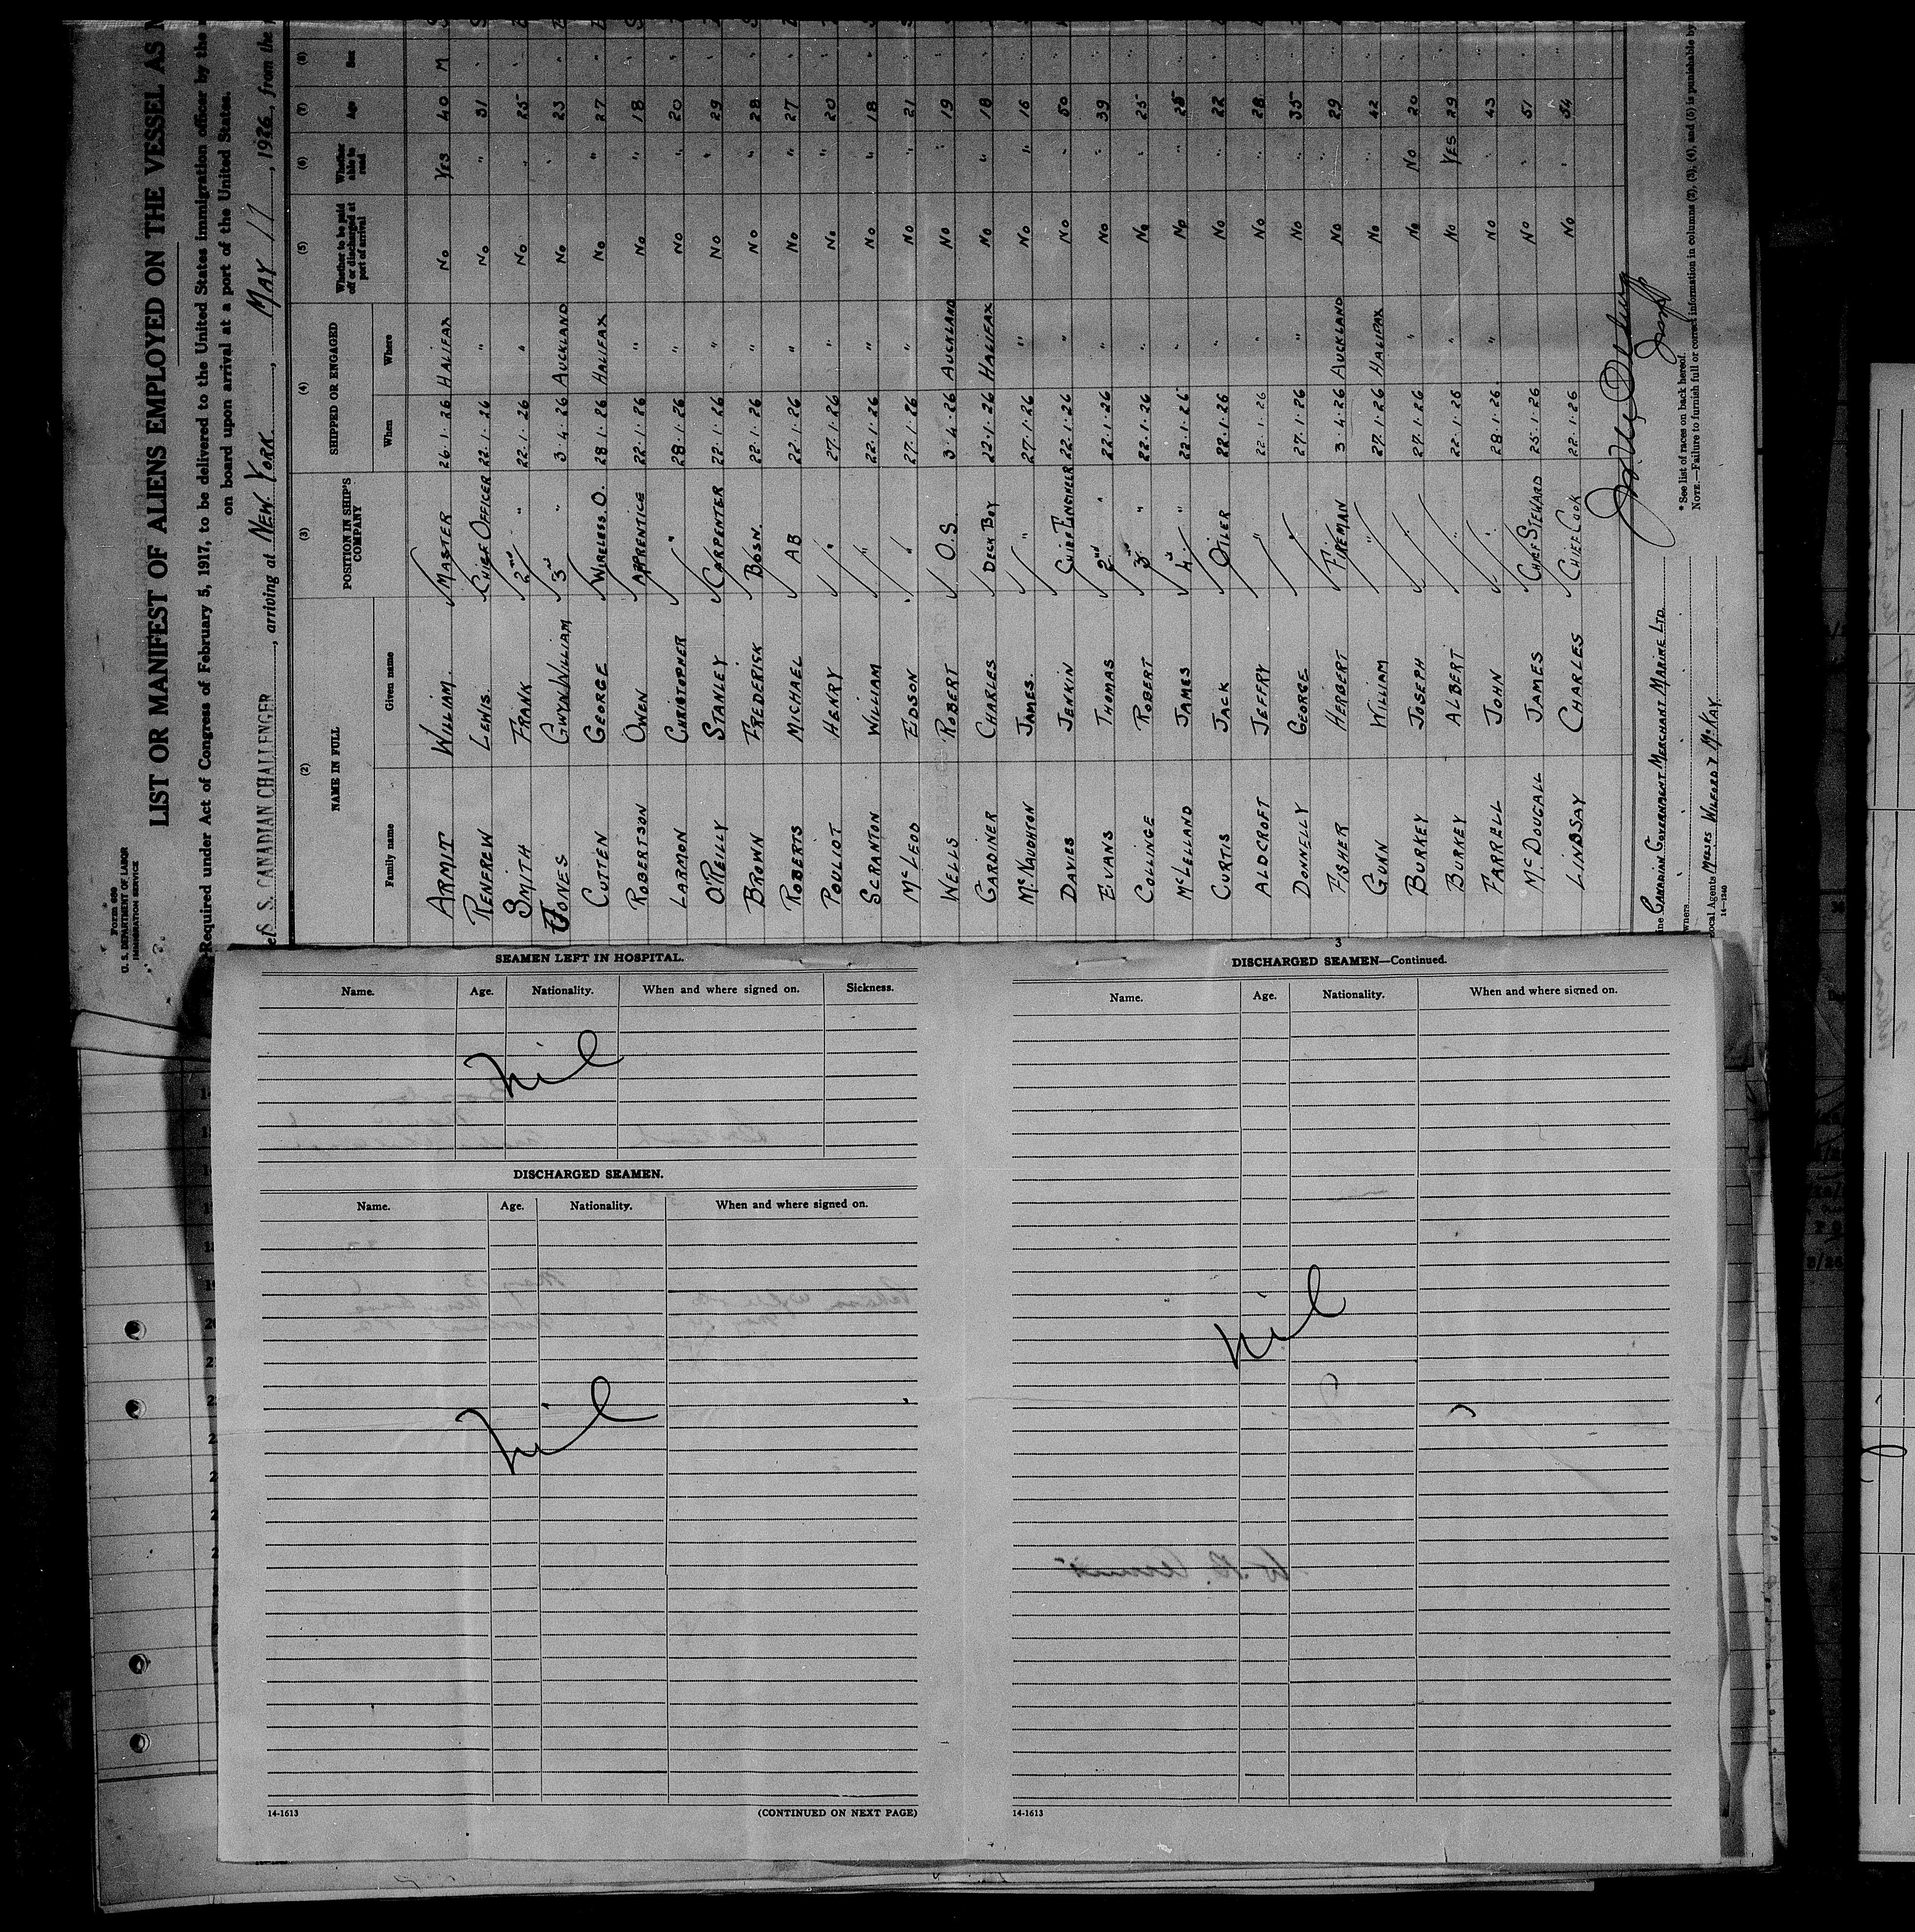 Form 680
U. S. DEPARTMENT OF LABOR
IMMIGRATION SERVICE
LIST OR MANIFEST OF ALIENS EMPLOYED ON THE VESSEL AS
Required under Act of Congress of February 5, 1917, to be delivered to the United States immigration officer by the
on board upon arrival at a port of the United States.
S. S. CANADIAN CHALLENGER, arriving at NEW YORK, MAY 17, 1926, from the
(2) (3) (4) (5) (6) (7) (8)
NAME IN FULL POSITION IN SHIP'S COMPANY SHIPPED OR ENGAGED Whether to be paid off or discharged at port of arrival Whether able to read Age Sex
Family name Given name When Where
ARMIT WILLIAM. MASTER 26.1.26 HALIFAX NO YES 40 M
RENFREW LEWIS. CHIEF OFFICER 22.1.26 " NO " 31 "
SMITH FRANK 2ND " 22.1.26 " NO " 25 "
JONES GWYN WILLIAM 3RD " 3.4.26 AUCKLAND NO " 23 "
CUTTEN GEORGE WIRELESS. O. 28.1.26 HALIFAX NO " 27 "
ROBERTSON OWEN APPRENTICE 22.1.26 " NO " 18 "
LARMON CHRISTOPHER " 28.1.26 " NO " 20 "
O'REILLY STANLEY CARPENTER 22.1.26 " NO " 29 "
BROWN FREDERICK BOSN. 22.1.26 " NO " 28 "
ROBERTS MICHAEL AB 22.1.26 " NO " 27 "
POULIOT HENRY " 27.1.26 " NO " 20 "
SCRANTON WILLIAM " 22.1.26 " NO " 18 "
McLEOD EDSON " 27.1.26 " NO " 21 "
WELLS ROBERT O.S. 3.4.26 AUCKLAND NO " 19 "
GARDINER CHARLES DECK BOY 22.1.26 HALIFAX NO " 18 "
McNAUGHTON JAMES. " 27.1.26 " NO " 16 "
DAVIES JENKIN CHIEF ENGINEER 22.1.26 " NO " 50 "
EVANS THOMAS 2ND " 22.1.26 " NO " 39 "
COLLINGE ROBERT 3RD " 22.1.26 " NO " 25 "
McLELLAND JAMES 4TH " 22.1.26 " NO " 25 "
CURTIS JACK OILER 22.1.26 " NO " 22 "
ALDCROFT JEFFRY " 22.1.26 " NO " 28 "
DONNELLY GEORGE " 27.1.26 " NO " 35 "
FISHER HERBERT FIREMAN 3.4.26 AUCKLAND NO " 29 "
GUNN WILLIAM " 27.1.26 HALIFAX NO " 42 "
BURKEY JOSEPH " 27.1.26 " NO NO 20 "
BURKEY ALBERT " 22.1.26 " NO YES 29 "
FARRELL JOHN " 28.1.26 " NO " 43 "
McDOUGALL JAMES CHIEF STEWARD 25.1.26 NO " 51 "
LINDSAY CHARLES CHIEF COOK 22.1.26 NO " 54 "
Line CANADIAN GOVERNMENT MERCHANT MARINE LTD
Owners "
Local Agents MESSRS WILFORD & McKAY
14-1240
*See list of races on back hereof.
NOTE.—Failure to furnish full or correct information in columns (2), (3), (4), and (5) is punishable by
SEAMEN LEFT IN HOSPITAL.
Name. Age. Nationality. When and where signed on. Sickness.
nil
DISCHARGED SEAMEN.
Name. Age. Nationality. When and where signed on.
nil
14-1613 (CONTINUED ON NEXT PAGE)
3
DISCHARGED SEAMEN—Continued.
Name. Age. Nationality. When and where signed on.
nil
14-1613